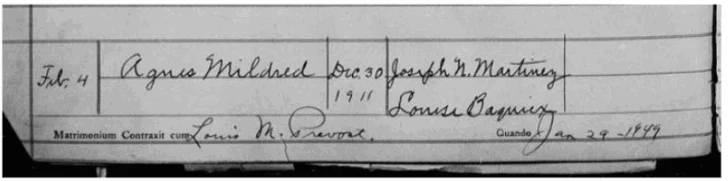 Feb. 4 Agnes Mildred Dec. 30 Joseph N. Martinez
1911 Louise Bagnier
Matrimonium Contraxit cum Louis M. Prevost. Quando Jan 29 - 1949